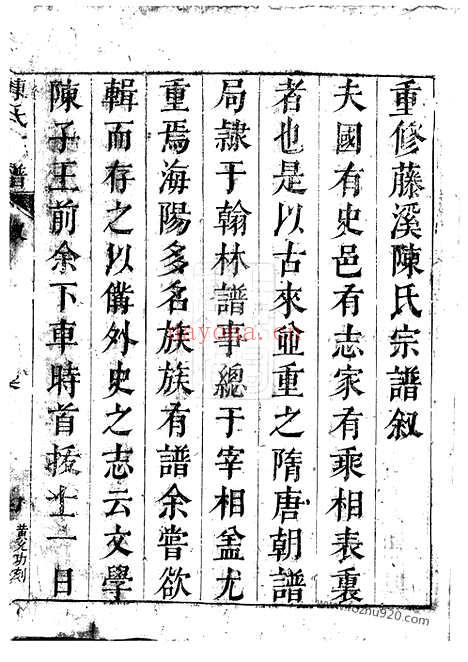 重修藤溪陳氏宗譜叙
夫國有史邑有志家有乘相表裏
者也是以古來並重之隋唐朝譜
局隷于翰林譜事總于宰相盖尤
重焉海陽多名族族有譜余嘗欲
輯而存之以備外史之志云文學
陳子王前余下車時首拔士一日
陳氏 譜
黄文功刻
nayona.cn
www.fozhu920.com